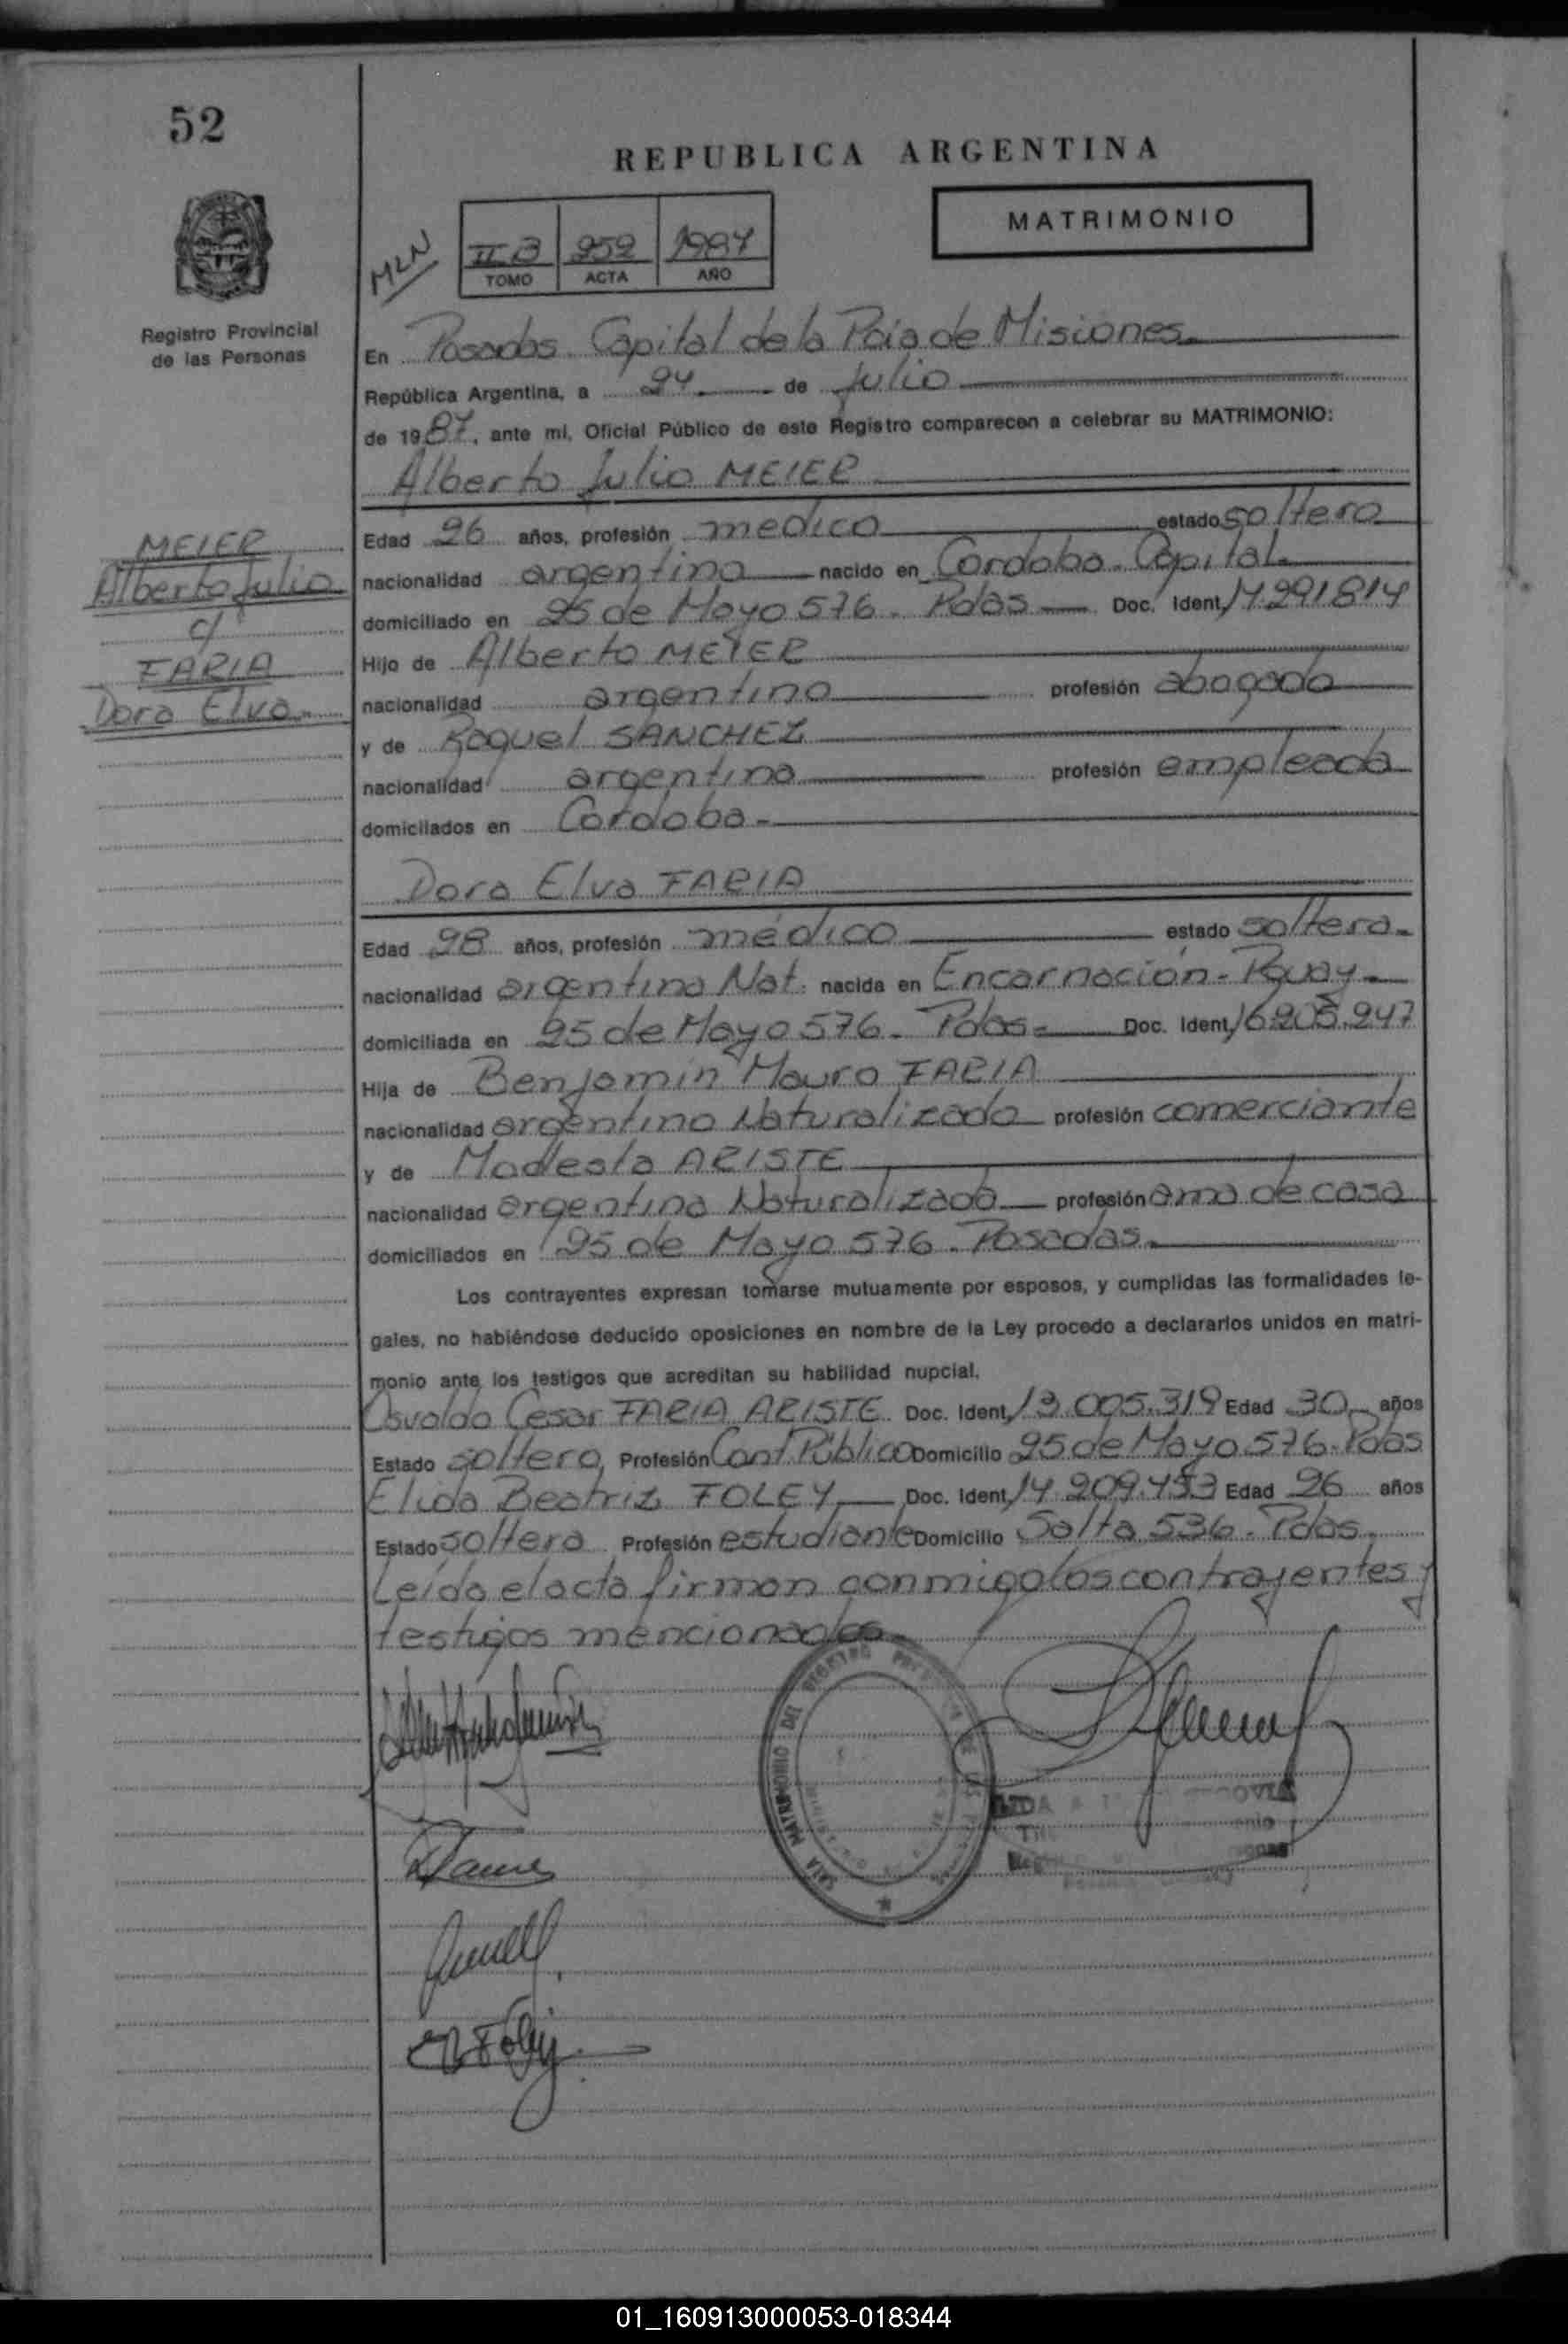 52
REPUBLICA ARGENTINA
MATRIMONIO
MLN
II B 252 1987
TOMO ACTA AÑO
Registro Provincial
de las Personas
En Posadas. Capital de la Pcia de Misiones
República Argentina, a 24 de Julio
de 1987, ante mi, Oficial Público de este Registro comparecen a celebrar su MATRIMONIO:
Alberto Julio MEIER
MEIER
Alberto Julio
c/
FARIA
Dora Elva
Edad 26 años, profesión medico estado soltero
nacionalidad argentino nacido en Cordoba. Capital
domiciliado en 25 de Mayo 576. Pdas Doc. Ident. 14.291.814
Hijo de Alberto MEIER
nacionalidad argentino profesión abogado
y de Raquel SANCHEZ
nacionalidad argentina profesión empleada
domiciliados en Cordoba
Dora Elva FARIA
Edad 28 años, profesión médico estado soltera
nacionalidad argentina Nat. nacida en Encarnación - Pguay
domiciliada en 25 de Mayo 576. Pdas Doc. Ident. 16.205.247
Hija de Benjamin Mauro FARIA
nacionalidad argentino Naturalizado profesión comerciante
y de Modesta ARISTE
nacionalidad argentina Naturalizada profesión ama de casa
domiciliados en 25 de Mayo 576. Posadas
Los contrayentes expresan tomarse mutuamente por esposos, y cumplidas las formalidades le-
gales, no habiéndose deducido oposiciones en nombre de la Ley procedo a declararlos unidos en matri-
monio ante los testigos que acreditan su habilidad nupcial.
Osvaldo Cesar FARIA ARISTE Doc. Ident. 13.005.319 Edad 30 años
Estado soltero Profesión Cont. Público Domicilio 25 de Mayo 576. Pdas
Elida Beatriz FOLEY Doc. Ident. 14.209.453 Edad 26 años
Estado soltera Profesión estudiante Domicilio Salta 536. Pdas.
Leída el acta firman conmigo los contrayentes y
testigos mencionados
01_160913000053-018344